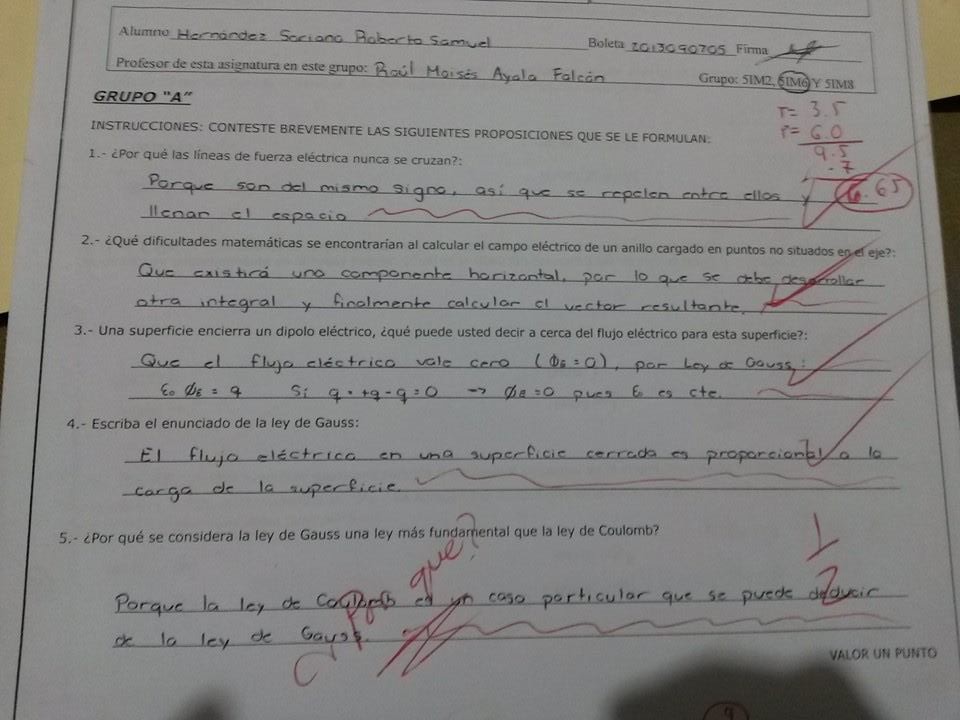 Alumno Hernández Soriano Roberto Samuel Boleta 2013090705 Firma
Profesor de esta asignatura en este grupo: Raúl Moisés Ayala Falcón Grupo: 5IM2, 5IM6 Y 5IM8
GRUPO "A"
T= 3.5
P= 6.0
9.5
.7
6.65
INSTRUCCIONES: CONTESTE BREVEMENTE LAS SIGUIENTES PROPOSICIONES QUE SE LE FORMULAN:
1.- ¿Por qué las líneas de fuerza eléctrica nunca se cruzan?:
Porque son del mismo signo, así que se repelen entre ellos y
llenan el espacio
2.- ¿Qué dificultades matemáticas se encontrarían al calcular el campo eléctrico de un anillo cargado en puntos no situados en el eje?:
Que existirá una componente horizontal, por lo que se debe desarrollar
otra integral y finalmente calcular el vector resultante.
3.- Una superficie encierra un dipolo eléctrico, ¿qué puede usted decir a cerca del flujo eléctrico para esta superficie?:
Que el flujo eléctrico vale cero (ΦE = 0), por Ley de Gauss:
ε0 ΦE = q Si q = +q - q = 0 → ΦE = 0 pues ε0 es cte.
4.- Escriba el enunciado de la ley de Gauss:
El flujo eléctrico en una superficie cerrada es proporcional a la
carga de la superficie.
5.- ¿Por qué se considera la ley de Gauss una ley más fundamental que la ley de Coulomb?
1
2
¿Por que?
Porque la ley de Coulomb es un caso particular que se puede deducir
de la ley de Gauss.
VALOR UN PUNTO
9